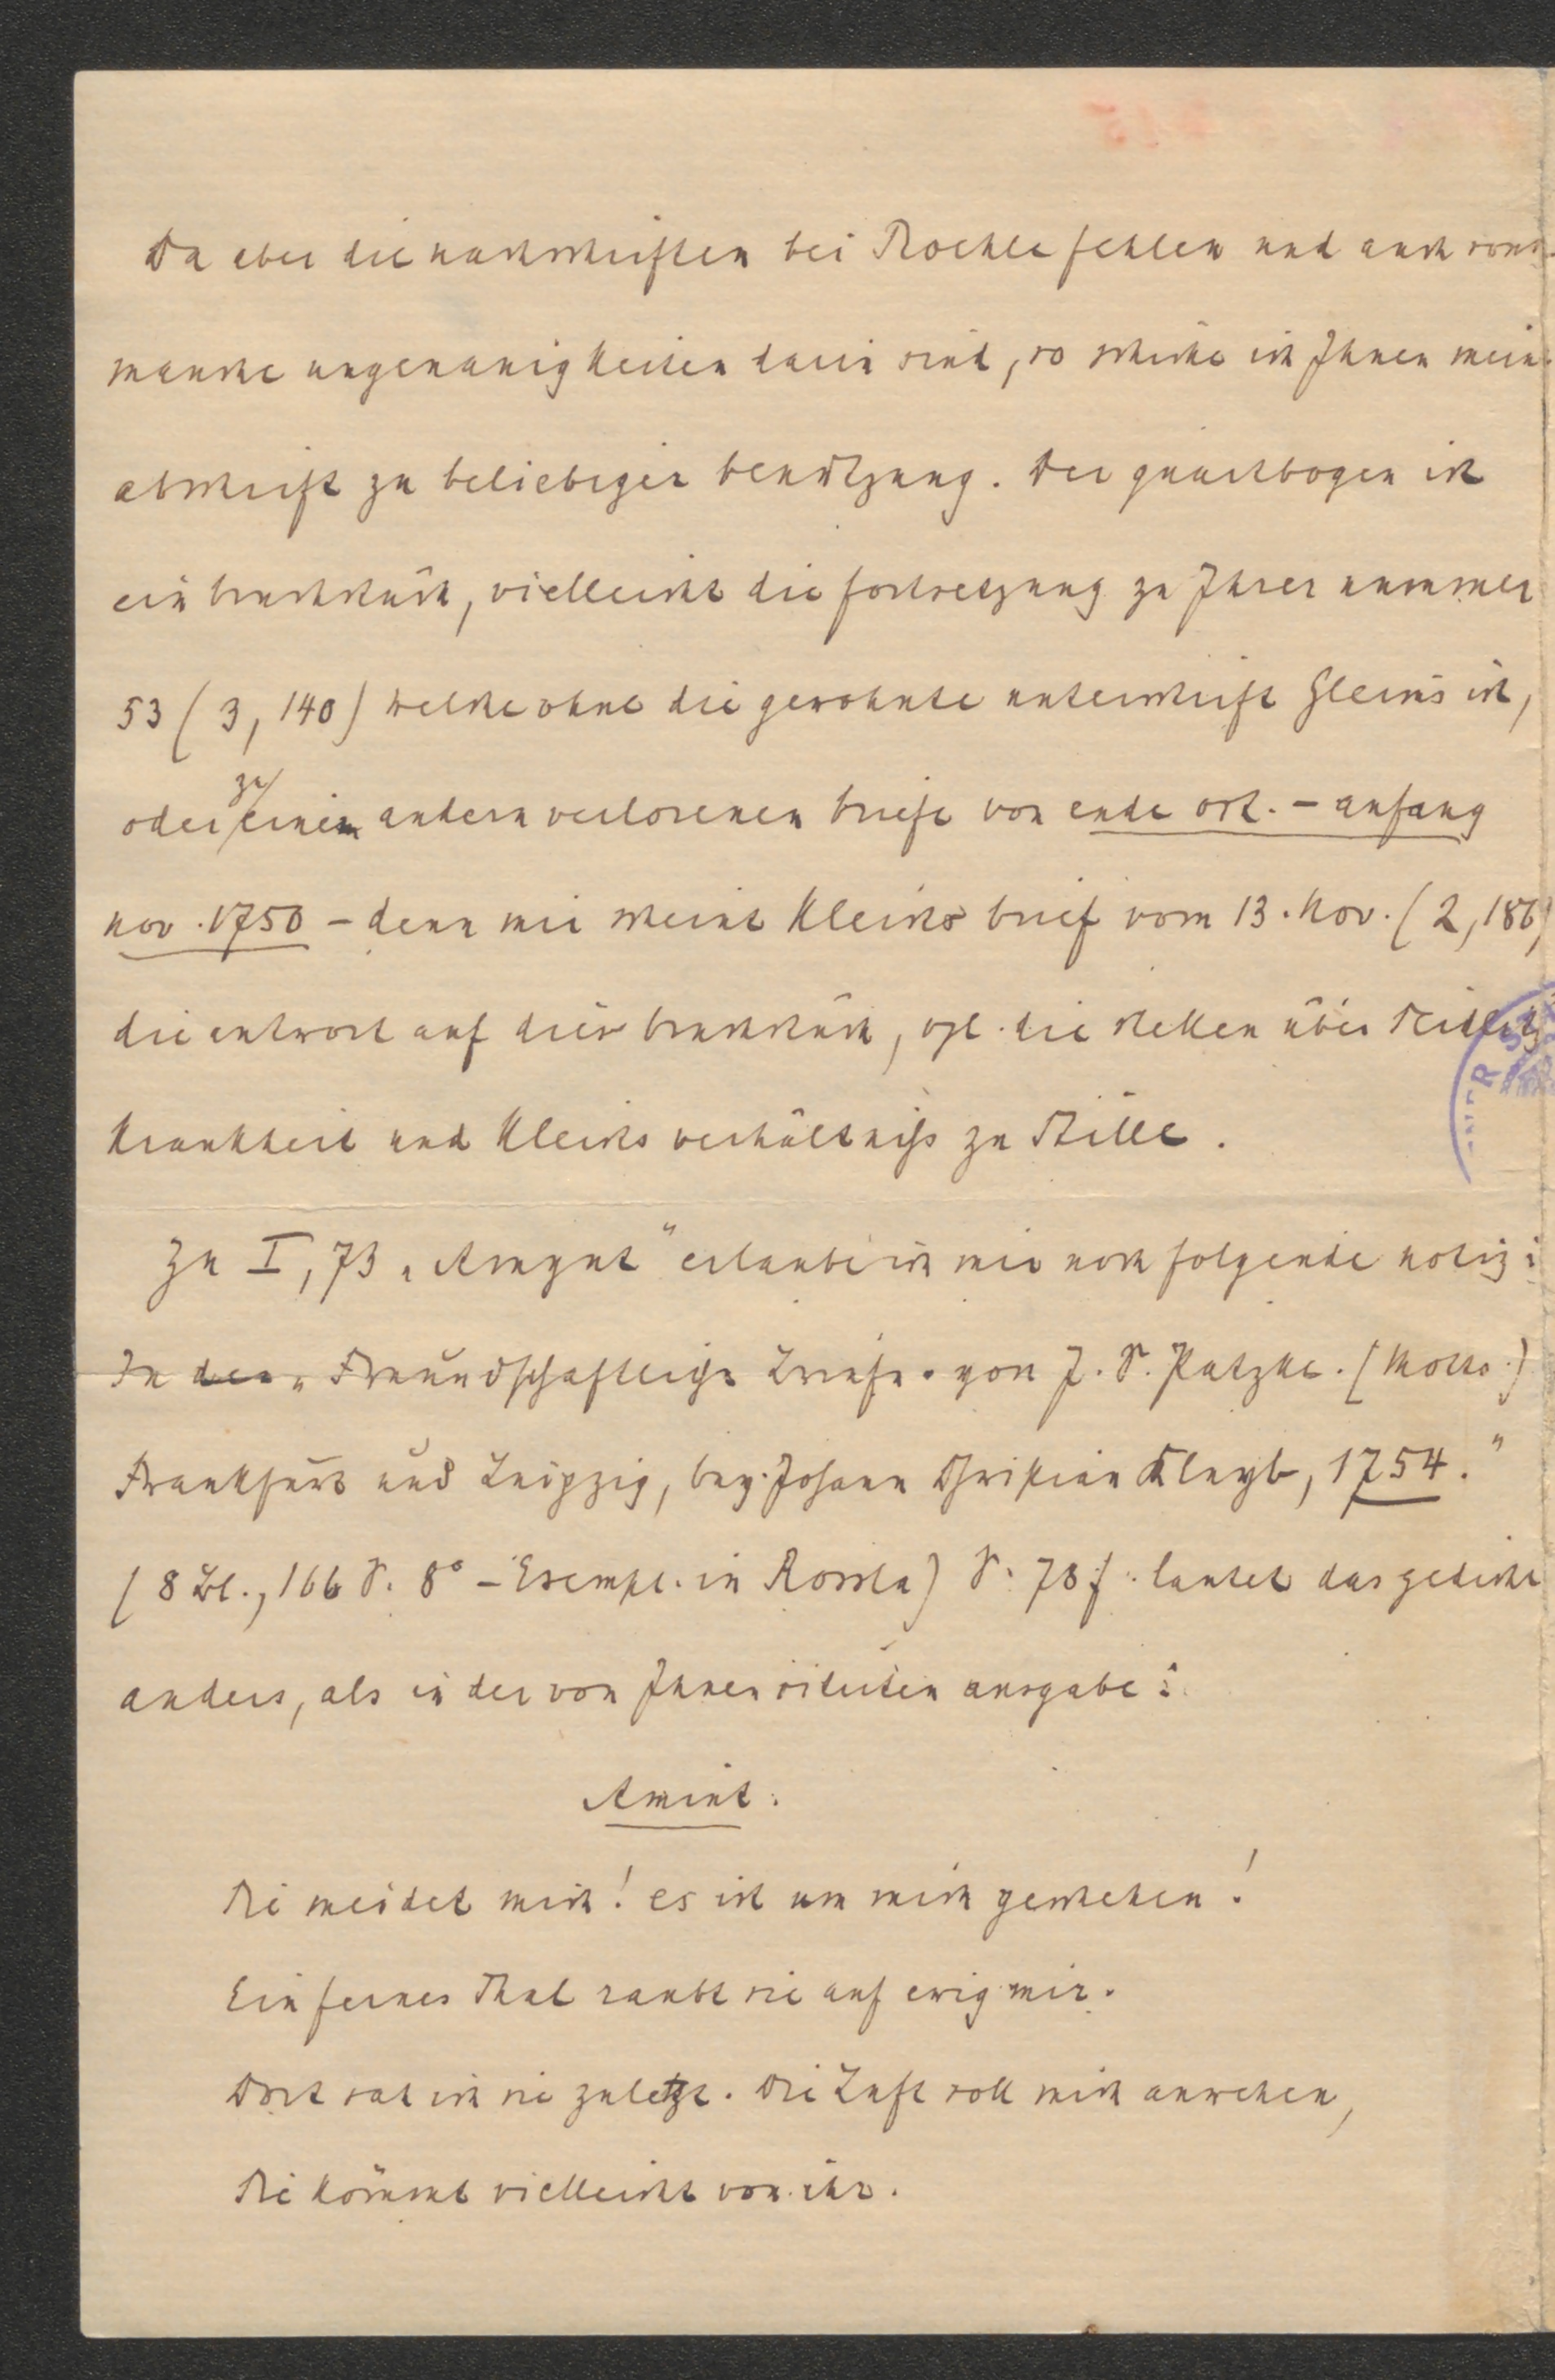 Da aber die nachschriften bei Roehle fehlen und auch sonst
manche ungenauigkeiten darin sind, so schicke ich Ihnen meine
abschrift zu beliebiger benützung. Der quartbogen ist
ein bruchstück, vielleicht die fortsetzung zu Ihrer nummer
53 (3, 140) welche ohne die gewohnte unterschrift Gleims ist,
oder zu einem andern verlorenen briefe von ende okt. – anfang
nov. 1750 – denn mir scheint Kleists brief vom 13. Nov. (2, 186)
die antwort auf dies bruchstück, vgl. die stellen über Seidlitz
Krankheit und Kleists verhältniss zu Stille.
Zu I, 73 „Amynt" erlaube ich mir noch folgende notiz:
In den „Freundschaftliche Briefe. von J. S. Patzke. (Motto.)
Frankfurt und Leipzig, bey Johann Christian Kleyb, 1754."
(8 Bl., 166 S. 8° – Exempl. in Rossla) S. 78f. lautet das gedicht
anders, als in der von Ihnen citierten ausgabe:
Amint.
Sie meidet mich! es ist um mich geschehen!
Ein fernes Thal raubt sie auf ewig mir.
Dort sah ich sie zuletzt. Die Luft soll mich anwehen,
Sie kömmt vielleicht von ihr.